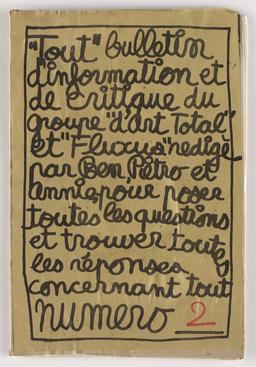 "Tout" bulletin
d'information et
de critique du
groupe "d'art Total"
et "Fluxus" redigé
par Ben, Piétro et
Annie, pour poser
toutes les questions
et trouver toutes
les réponses
concernant tout
numero 2